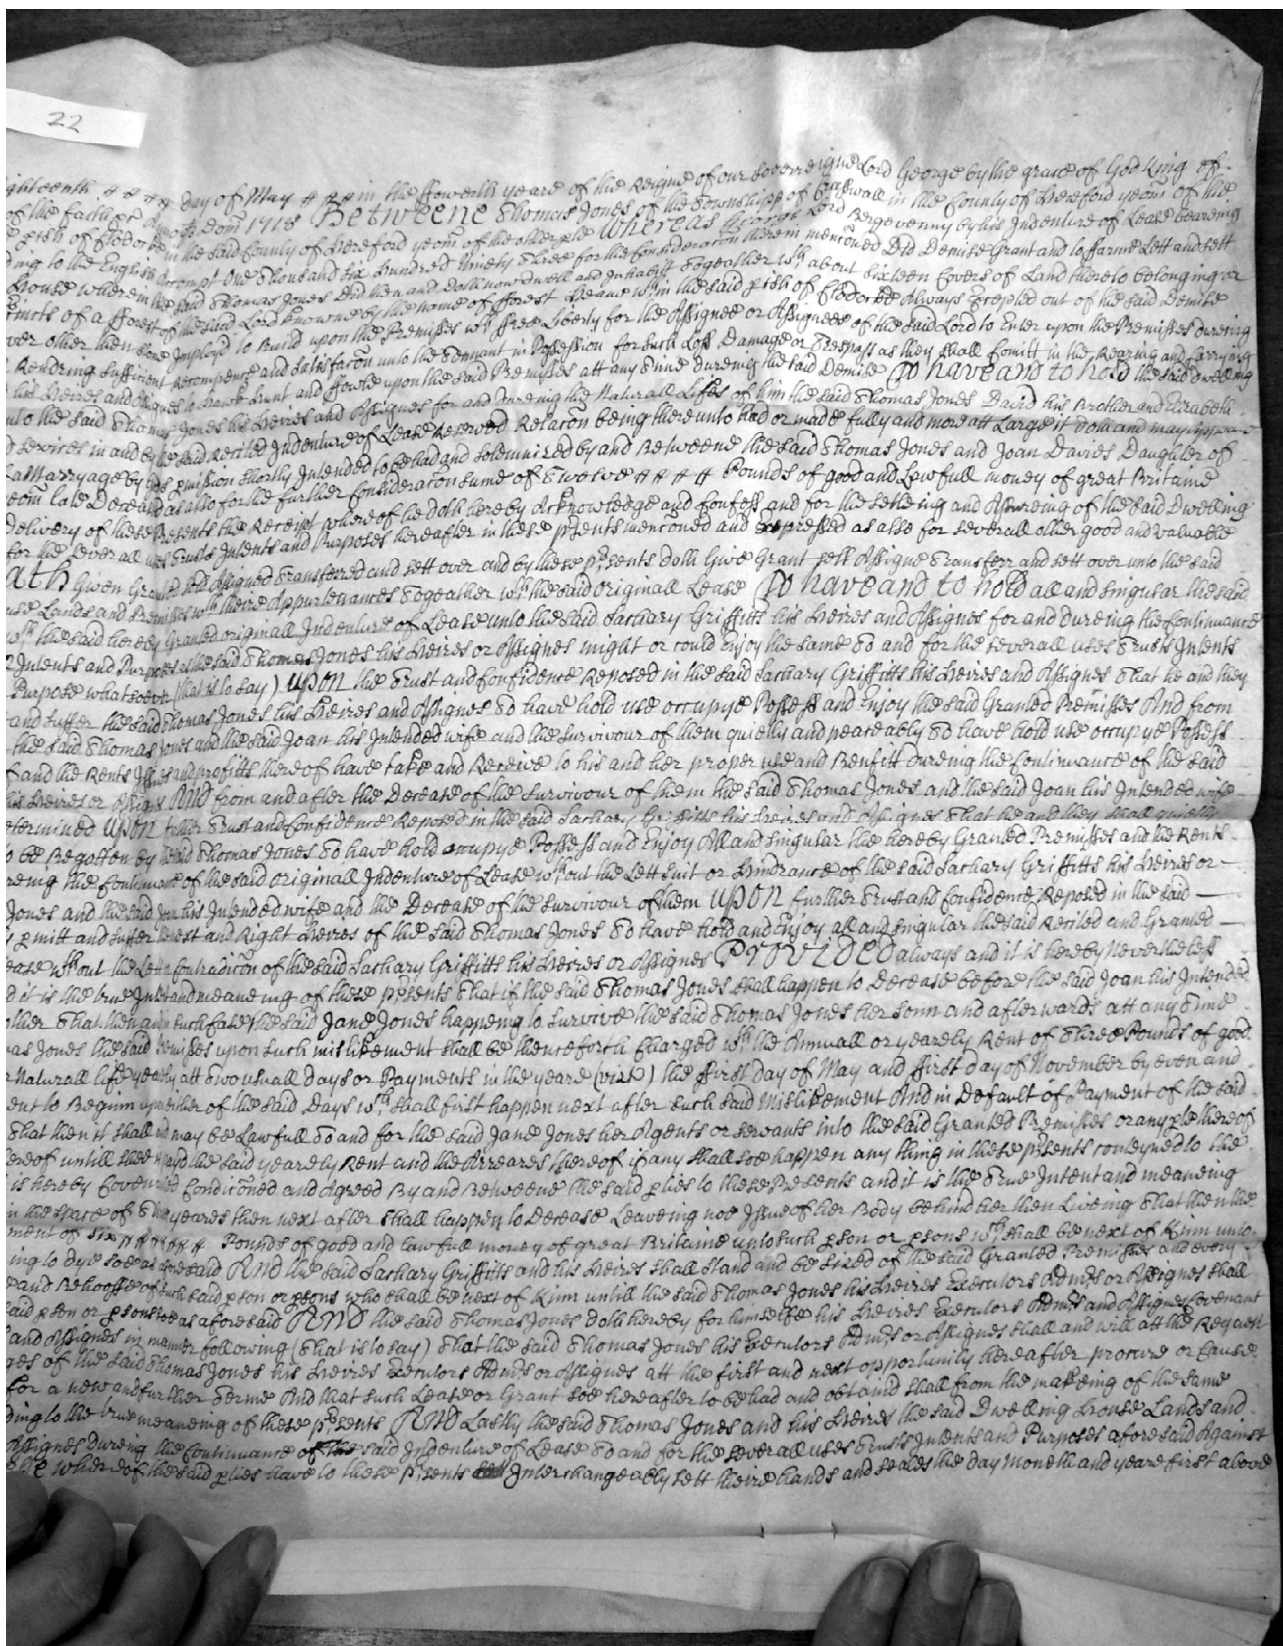 22
ighteenth day of May in the ffowerth yeare of the Reigne of our Sovereigne Lord George by the grace of God King of
of the faith &c Annoq Dom 1718 Betweene Thomas Jones of the Township of Crasswall in the County of Hereford yeom of the
pish of Clodocke in the said County of Hereford yeom of the other pte Whereas George Lord Bergevenny by his Indenture of Lease beareing
ding to the English Accompt One Thousand Six Hundred Ninety Three for the Consideracon therein menconed Did Demise Grant and to ffarme Lett and sett
House wherein the said Thomas Jones did then and doth now dwell and Inhabitt Togeather wth about Sixteen Covers of Land thereto belonging or
cincts of a fforest of the said Lord knowne by the name of fforest Heane wthin the said pish of Clodocke Always Excepted out of the said Demise
over other then soe Imployd to Build upon the Premisses wth ffree Liberty for the Assignee or Assignees of the said Lord to Enter upon the Premisses dureing
Rendring sufficient Recompence and Satisfacon unto the Tennant in Possession for such Loss Damage or Trespass as they shall Comitt in the Rearing and Carrying
his Heires and Assignes to Hawke Hunt and ffowle upon the said Premisses att any Time dureing the said Demise To have and to hold the said Dwelling
unto the said Thomas Jones his Heires and Assignes for and dureing the Naturall Lifes of him the said Thomas Jones David his Brother and Elizabeth
d services in and by the said Recited Indenture of Lease Reserved Relacon being thereunto had or made fully and more att Large it doth and may
a Marryage by Gods pmission shortly Intended to be had and Solemnized by and Betweene the said Thomas Jones and Joan Davies Daughter of
eom late Deceased as also for the further Consideracon sume of Twelve Pounds of good and Lawfull money of great Britaine
Delivery of these Presents the Receipt whereof he doth hereby Acknowledge and Confess and for the setleing and Assureing of the said Dwelling
for the severall uses Trusts Intents and Purposes hereafter in these psents menconed and Expressed as also for severall other good and valuable
ath Given Granted sold Assigned Transferred and sett over and by these psents doth Give Grant sell Assigne Transferr and sett over unto the said
use Lands and Premisses wth theire Appurtenances Togeather wth the said Originall Lease To have and to hold all and singular the said
wth the said hereby Granted originall Indenture of Lease unto the said Zachary Griffitts his Heires and Assignes for and dureing the Continuance
Intents and Purposes as the said Thomas Jones his Heires or Assignes might or could Enjoy the same To and for the severall uses Trusts Intents
Purpose whatsoever (that is to say) Upon the Trust and Confidence Reposed in the said Zachary Griffitts his Heires and Assignes That he and they
and suffer the said Thomas Jones his Heires and Assignes To have hold use occupye Possess and Enjoy the said Granted Premisses And from
the said Thomas Jones and the said Joan his Intended wife and the survivour of them quietly and peaceably To have hold use occupye Possess
and the Rents Issues and profitts thereof have take and Receive to his and her proper use and Benfitt dureing the Continuance of the said
his Heires or Assignes And from and after the Decease of the survivour of them the said Thomas Jones and the said Joan his Intended wife
etermined Upon further Trust and Confidence Reposed in the said Zachary Griffitts his Heires and Assignes That he and they shall quietly
to be Begotten by the said Thomas Jones To have hold occupye Possess and Enjoy All and singular the hereby Granted Premisses and the Rents
reing the Continuance of the said originall Indenture of Lease wthout the Lett suit or hindrance of the said Zachary Griffitts his Heires or
Jones and the said Joan his Intended wife and the Decease of the survivour of them Upon further Trust and Confidence Reposed in the said
pmitt and suffer the next and Right Heires of the said Thomas Jones To have hold and Enjoy all and singular the said Recited and Granted
Lease wthout the Lett or Contradicon of the said Zachary Griffitts his Heires or Assignes Provided always and it is hereby Nevertheless
d it is the true Intent and meaneing of these psents That if the said Thomas Jones shall happen to Decease before the said Joan his Intended
other That then and in such case the said Jane Jones happeng to survive the said Thomas Jones her sonn and afterwards att any Time
as Jones the said Premisses upon such mislikement shall be thenceforth Charged wth the Annuall or yearely Rent of Three Pounds of good
Naturall life yearly att Two usuall Days or Payments in the yeare (vizt) the ffirst day of May and ffirst day of November by even and
ent to Beginn upon either of the said Days wch shall first happen next after such said mislikement And in Default of Payment of the said
That then it shall and may be Lawfull To and for the said Jane Jones her Agents or servants into the said Granted Premisses or any pte thereof
ereof untill shee be paid the said yearely Rent and the Arreares thereof if any shall soe happen any thing in these psents conteyned to the
is hereby Covenanted Condiconed and Agreed By and Betweene the said pties to these Presents and it is the True Intent and meaneing
in the space of Three yeares then next after shall happen to Decease Leaveing noe Issue of her Body behind her then Liveing That then the
ment of Six Pounds of good and lawfull money of great Britaine unto such pson or psons wch shall be next of Kinn unto
ing to dye soe as aforesaid And the said Zachary Griffitts and his Heires shall stand and be seized of the said Granted Premisses and every
and Behoofe of such said pson or psons who shall be next of Kinn untill the said Thomas Jones his Heires Executors Admrs or Assignes shall
said pson or psons soe as aforesaid And the said Thomas Jones doth hereby for himselfe his Heires Executors Admrs and Assignes Covenant
and Assignes in manner following (That is to say) That the said Thomas Jones his Executors Admrs or Assignes shall and will att the Request
ges of the said Thomas Jones his Heires Executors Admrs or Assignes att the first and next opportunity hereafter procure or Cause
for a new and further Terme And that such Lease or Grant soe hereafter to be had and obtaind shall from the makeing of the same
ding to the true meaneing of these psents And Lastly the said Thomas Jones and his Heires the said Dwelling House Lands and
Assignes Dureing the Continuance of the said Indenture of Lease To and for the severall uses Trusts Intents and Purposes aforesaid Against
whereof the said pties have to these psents Interchangeably sett theire hands and seales the day Moneth and yeare first above